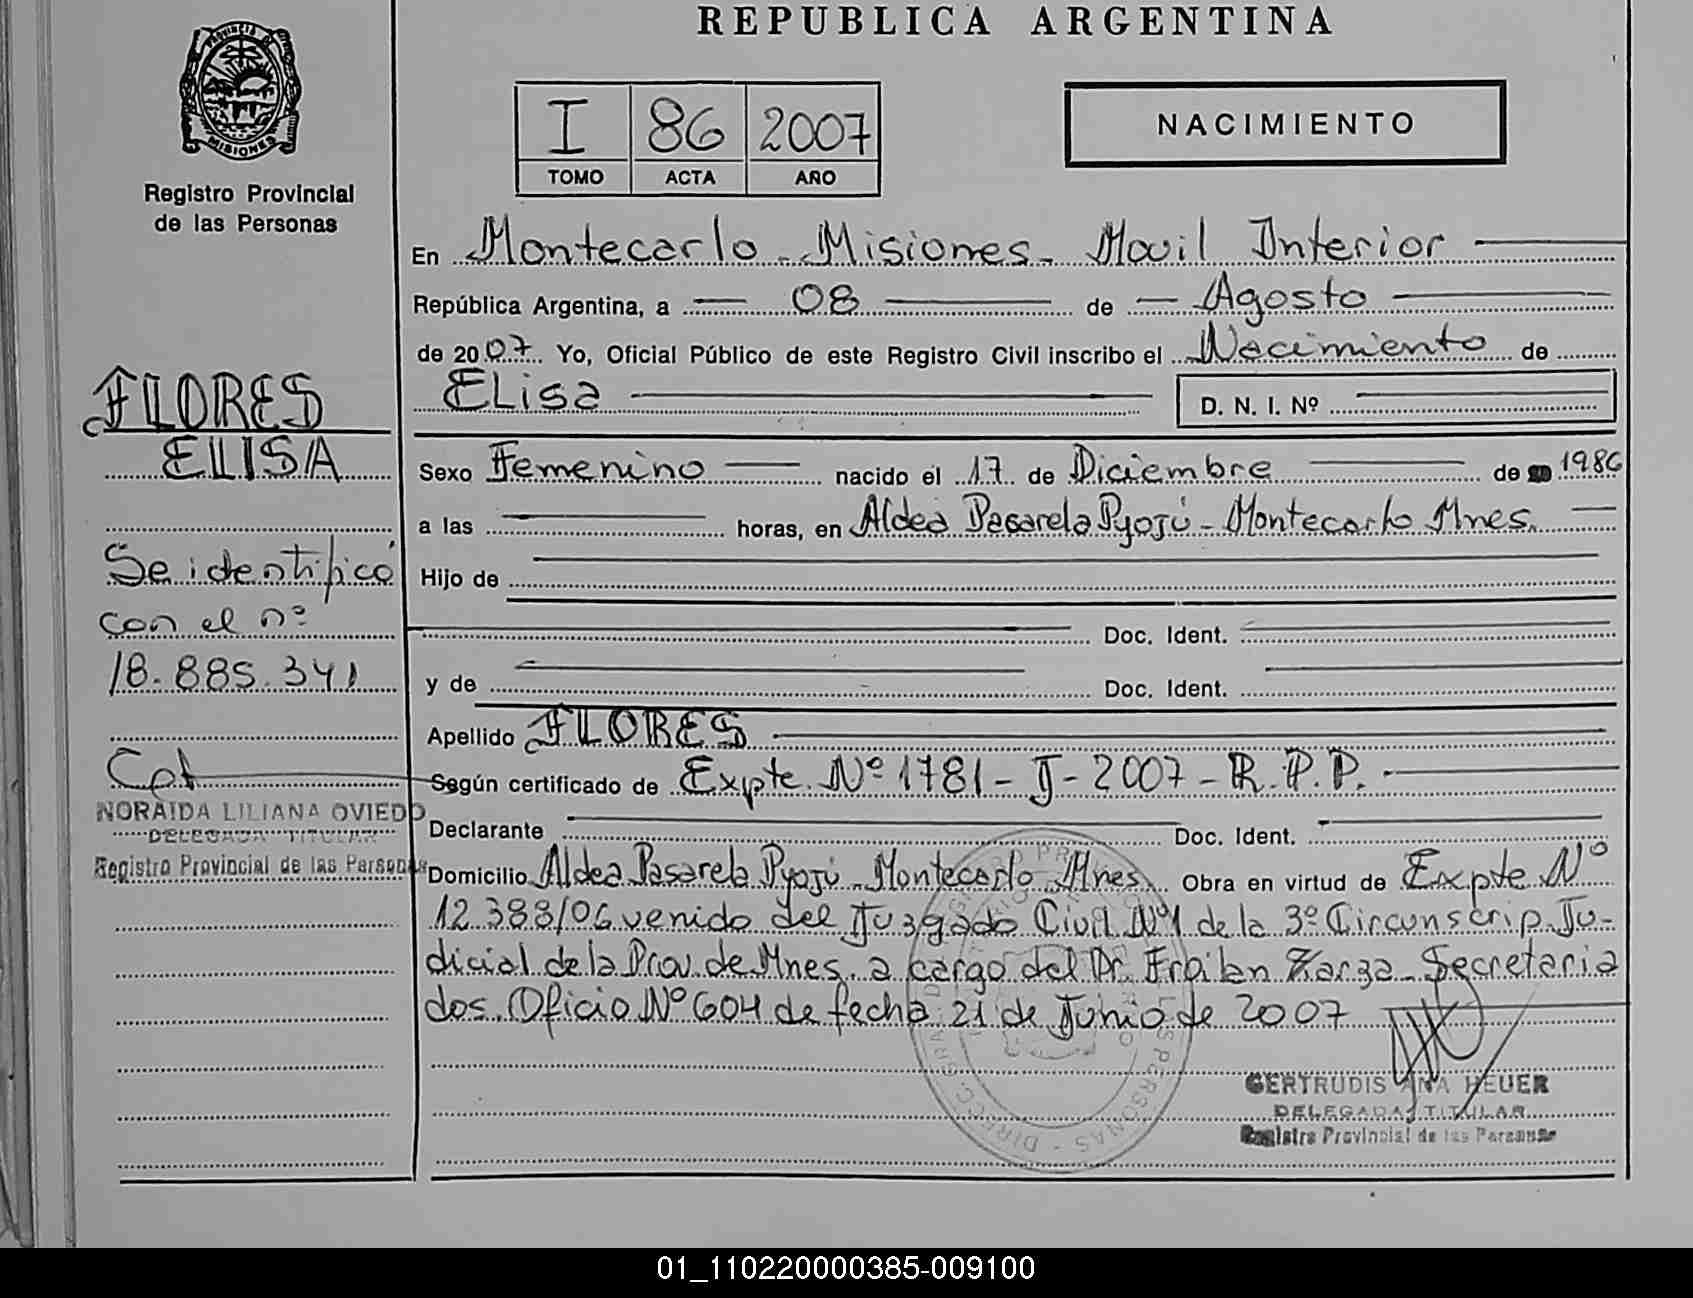 REPUBLICA ARGENTINA
PROVINCIA DE
MISIONES
Registro Provincial
de las Personas
I 86 2007
TOMO ACTA AÑO
NACIMIENTO
En Montecarlo - Misiones - Movil Interior
República Argentina, a 08 de Agosto
de 2007 Yo, Oficial Público de este Registro Civil inscribo el Nacimiento de
ELisa D. N. I. Nº
FLORES
ELISA
Sexo Femenino nacido el 17 de Diciembre de 1986
a las horas, en Aldea Pasarela Pyojú - Montecarlo Mnes.
Se identificó
con el nº
18.885.341
Hijo de
Doc. Ident.
y de Doc. Ident.
Apellido FLORES
Según certificado de Expte. Nº 1781 - J - 2007 - R.P.P.
NORAIDA LILIANA OVIEDO
DELEGADA TITULAR
Registro Provincial de las Personas
Declarante Doc. Ident.
Domicilio Aldea Pasarela Pyojú - Montecarlo Mnes. Obra en virtud de Expte Nº
12.388/06 venido del Juzgado Civil Nº1 de la 3º Circunscrip. Ju-
dicial de la Prov. de Mnes. a cargo del Dr. Froilan Zarza - Secretaria
dos. Oficio Nº 604 de fecha 21 de Junio de 2007
GERTRUDIS ANA HEUER
DELEGADA TITULAR
Registro Provincial de las Personas
01_110220000385-009100